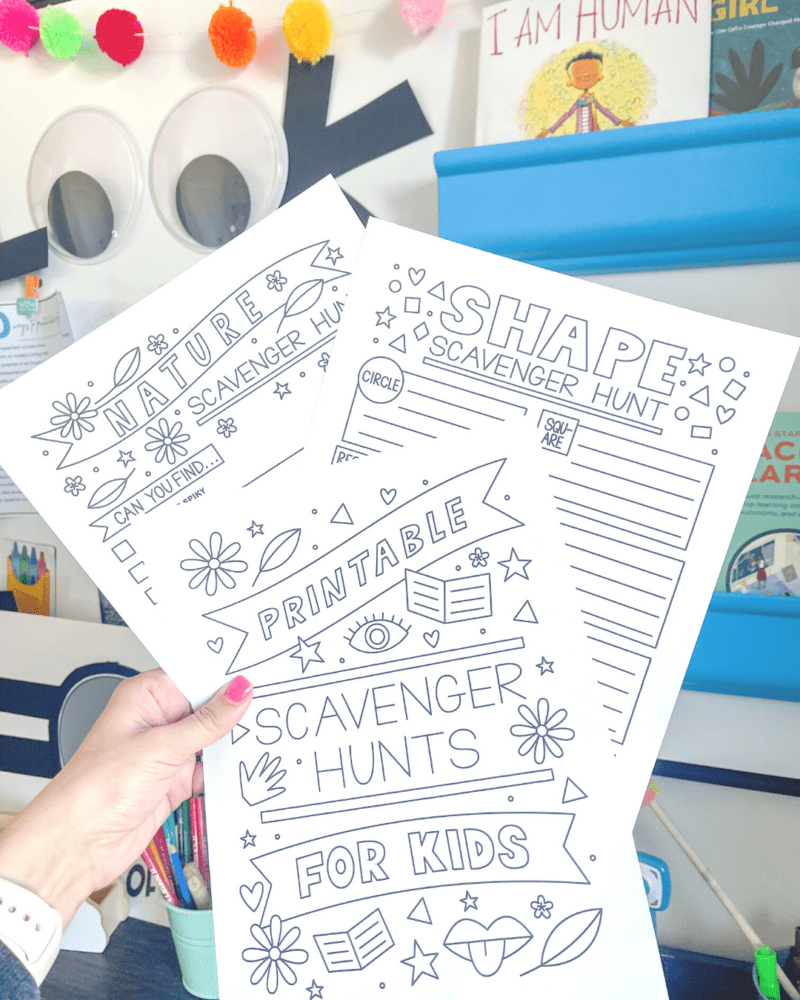 I AM HUMAN
GIRL
NATURE
SCAVENGER HUN
CAN YOU FIND...
SPIKY
SHAPE
SCAVENGER HUNT
CIRCLE
SQU-
ARE
PRINTABLE
SCAVENGER
HUNTS
FOR KIDS